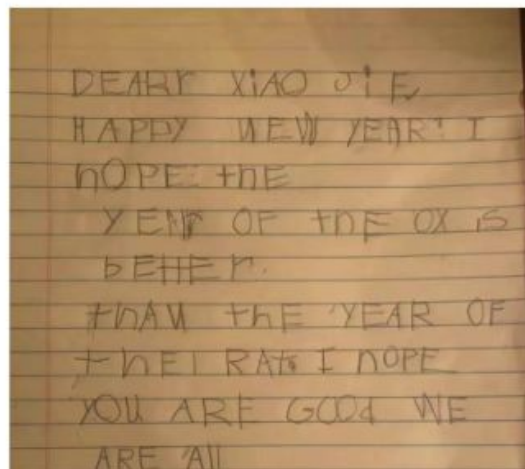 DEAR XIAO JIE
HAPPY NEW YEAR! I
hOPE thE
YEAR OF thE OX iS
bEttEr.
thAN thE YEAR OF
thE RAt. I hOPE
YOU ARE GOOd WE
ARE All